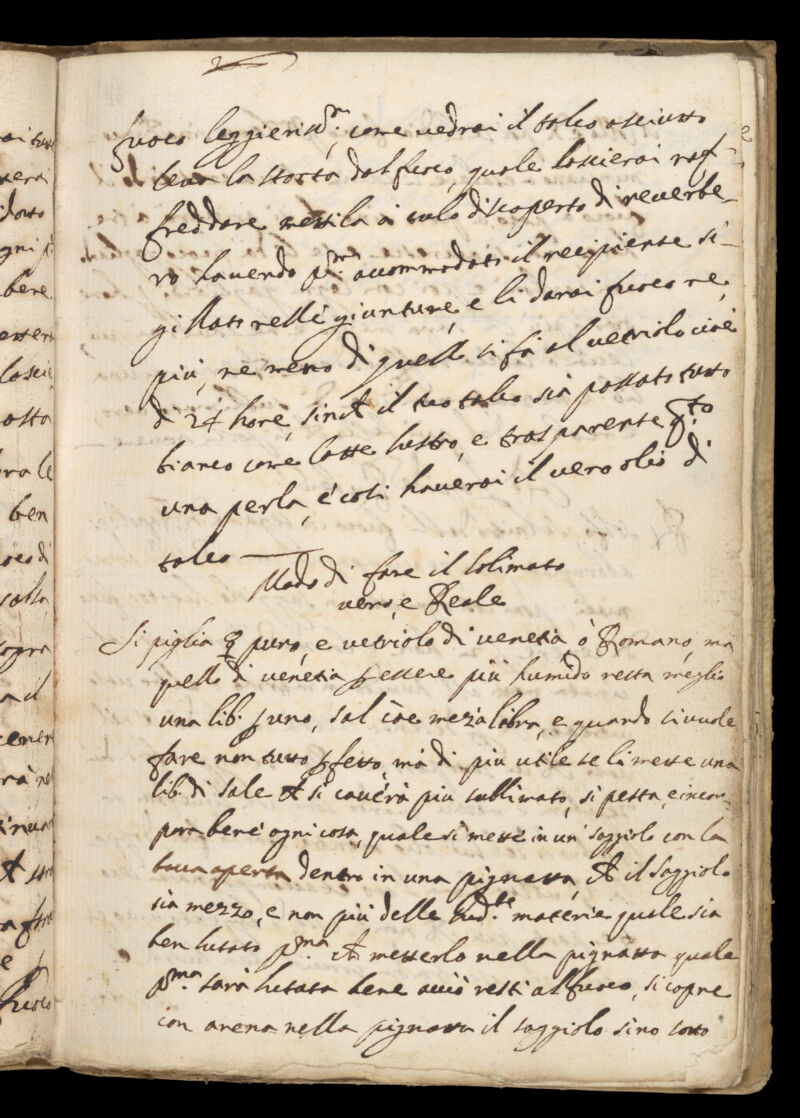 fuoco leggieriss.º, come vedrai il talco asciutto
leva la storta dal fuoco, quale lascierai raf-
freddare mettila à culo discoperto di reverbe-
ro havendo p.ª accommodato il recipiente si-
gillato nelle giunture, e li darai fuoco ne
più, ne meno di quello si fà al vetriolo cioè
di 24 hore, sin che il tuo talco sia passato tutto
bianco come latte lustro, e trasparente q.to
una perla, e così haverai il vero olio di
talco
Modo di fare il solimato
vero, e Reale
Si piglia ☿ puro, e vetriolo di venetia ò Romano, ma
quello di venetia p essere più humido resta meglio
una lib. p uno, sal cõe meza libra, e quando si vuole
fare non tutto pfetto, mà di più utile se li mette una
lib. di sale che si caverà più sullimato, si pesta, e incor-
pora bene ogni cosa, quale si mette in un saggiolo con la
bocca aperta dentro in una pignatta, che il saggiolo
sia mezzo, e non più delle sud.te materie quale sia
ben lutato p.ma che metterlo nella pignatta quale
p.ma sarà lutata bene acciò resti al fuoco, si copre
con arena nella pignatta il saggiolo sino sotto